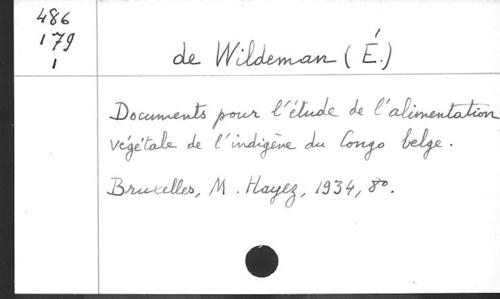 486
179
1
de Wildeman (É.)
Documents pour l'étude de l'alimentation
végétale de l'indigène du Congo belge.
Bruxelles, M. Hayez, 1934, 8º.